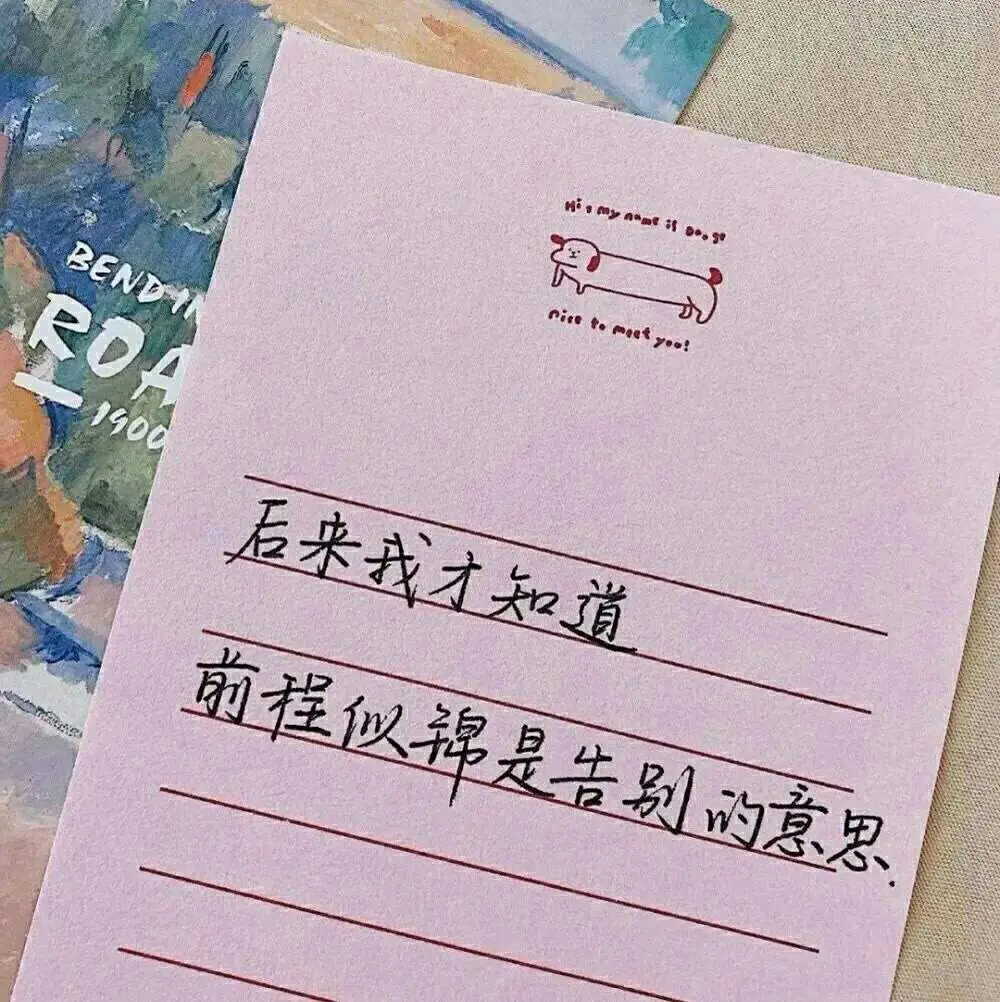 Hi , my name is Dooge
nice to meet you!
BENDIN
ROA
1900
后来我才知道
前程似锦是告别的意思.